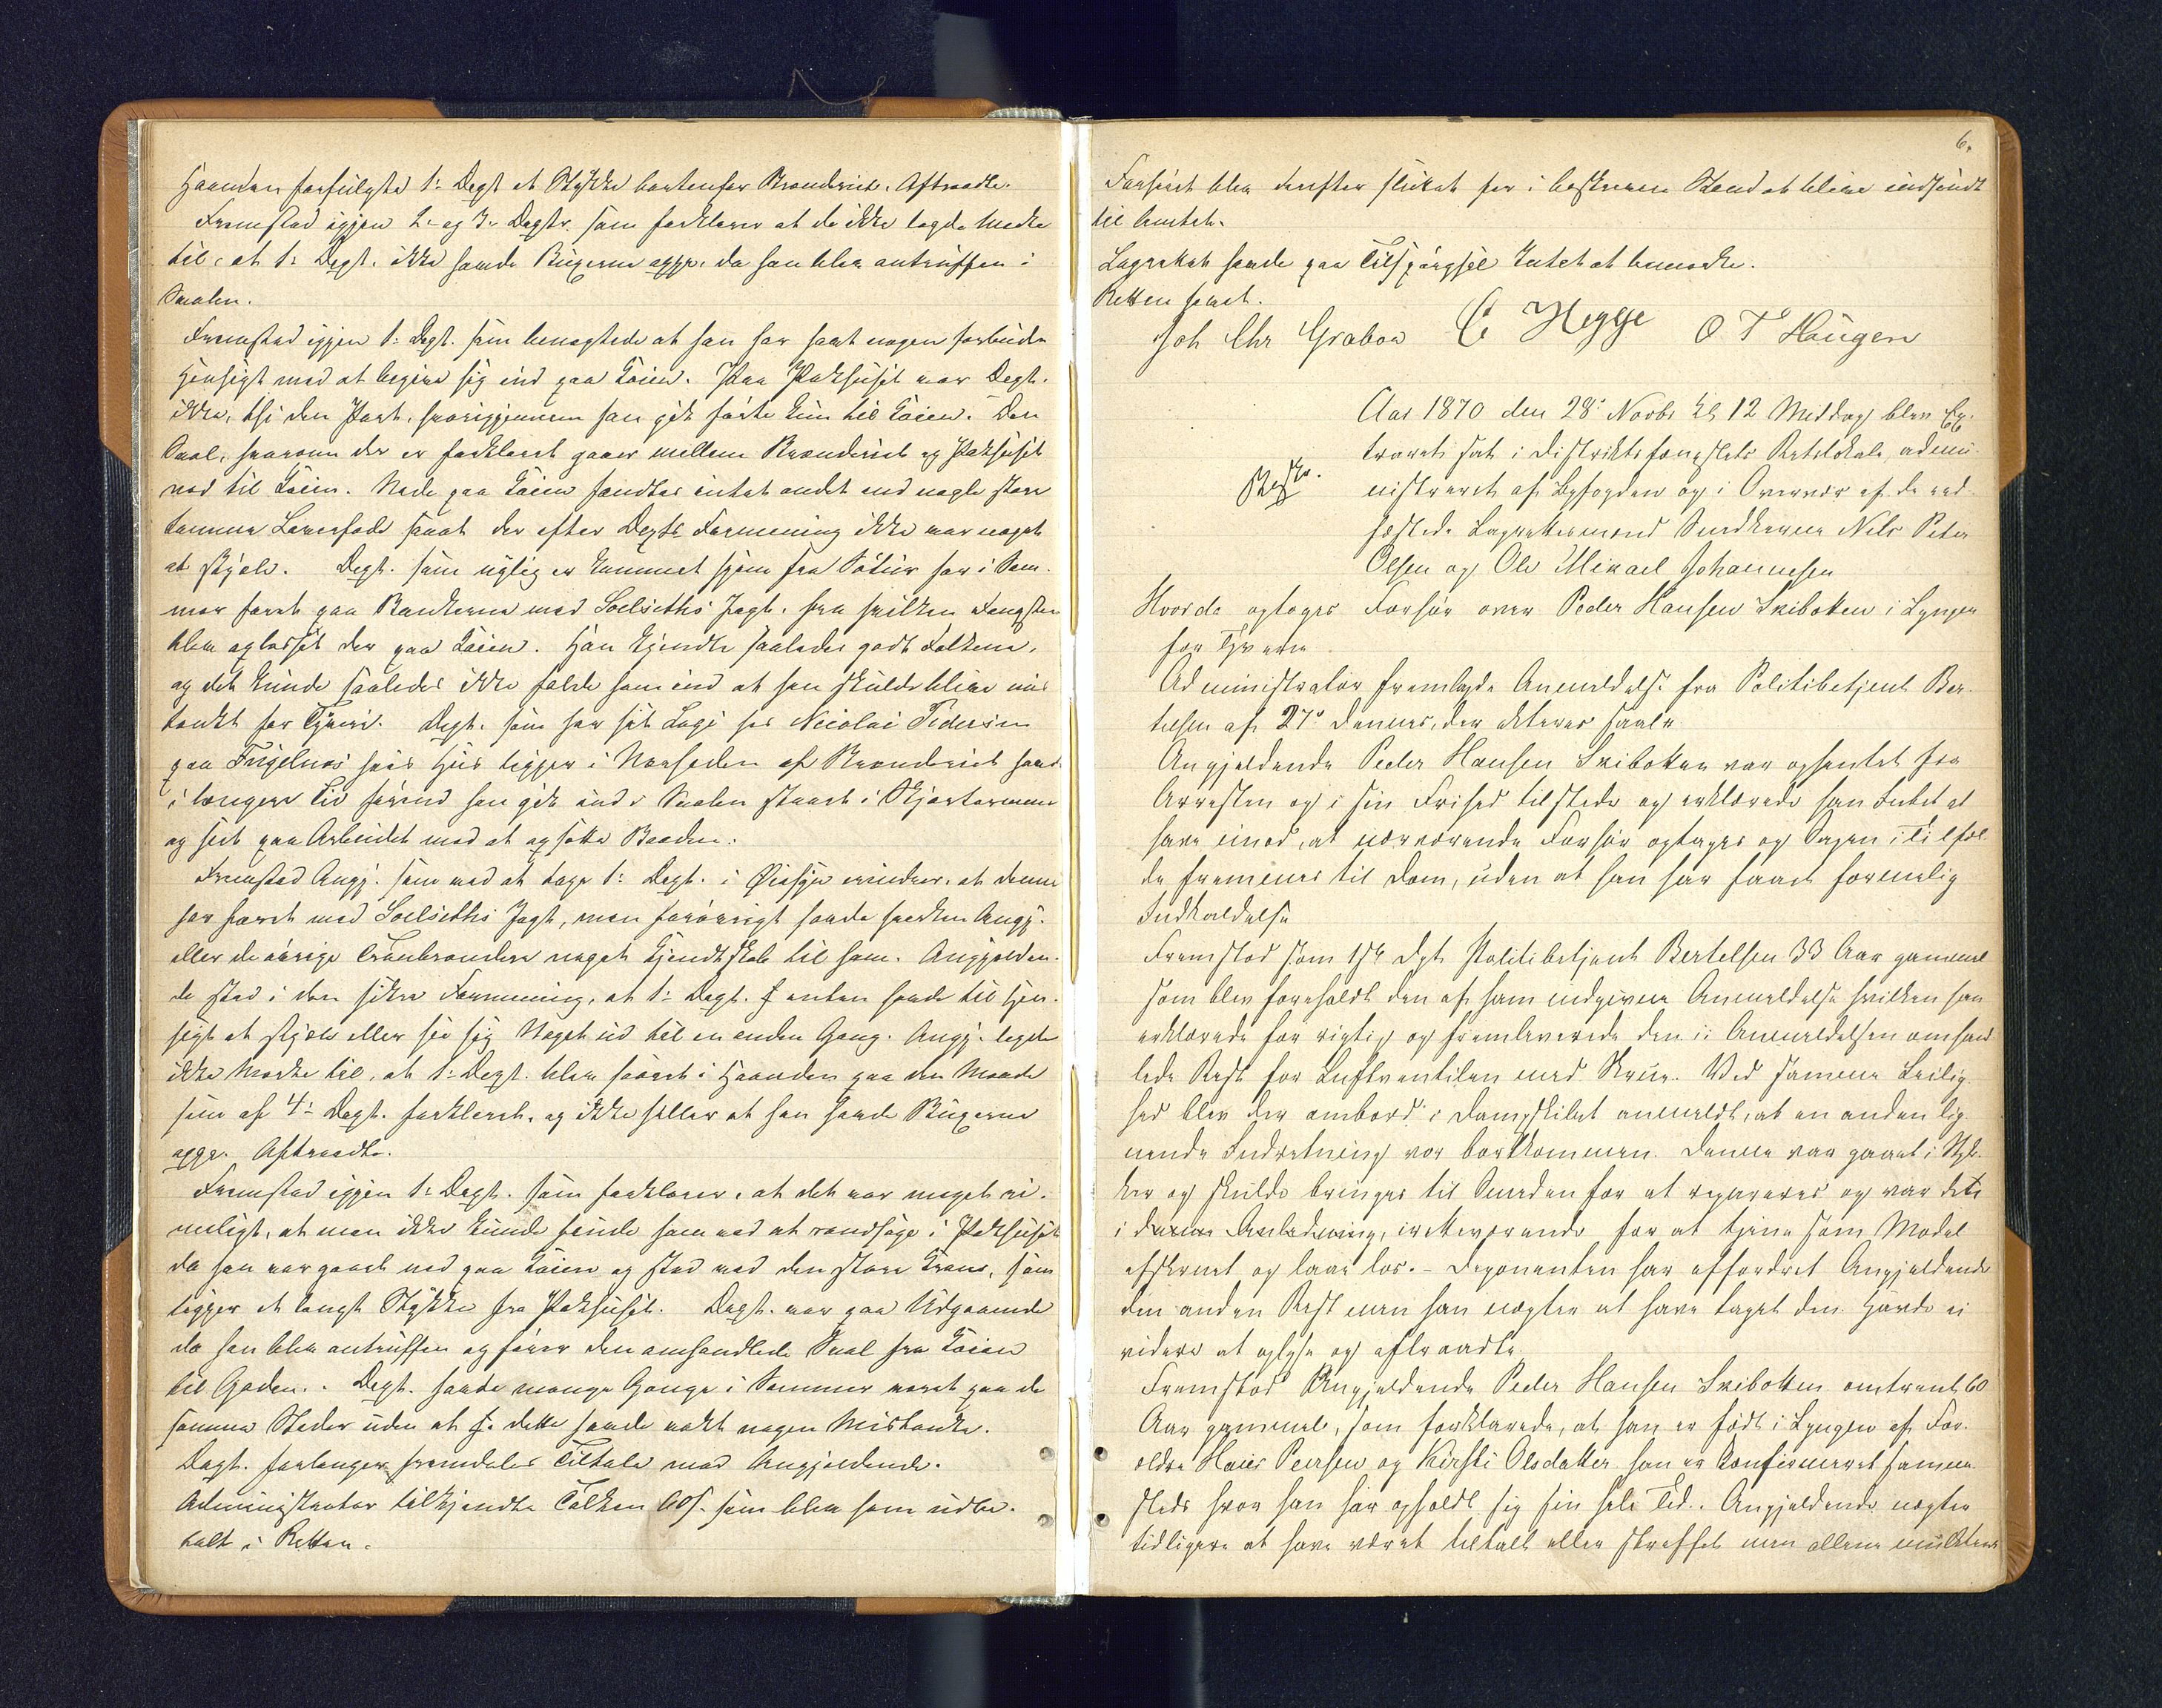 Haanden forfulgte 1: Degt et Stykke bortenfor Brænderiet. Aftraadte.
Fremstod igjen 2- og 3- Degtr. som forklarer at de ikke lagde Mærke
til, at 1: Degt. ikke havde Buxerne oppe, da han blev antruffen i
Smalen.
Fremstod igjen 1: Degt. som benegtede at han har havt nogen forbuden
Hensigt med at begive sig ind paa Kaien. Paa Pakhuset var Degt.
ikke, thi den Port, hvorigjennem han gik førte kun til Kaien. Den
Smal, hvorom der er forklaret gaaer mellem Brænderiet og Pakhuset
ned til Kaien. Nede paa Kaien fandtes intet andet end nogle store
tomme Leverfade saa at der efter Degts Formening ikke var noget
at stjæle. Degt. som nylig er kommet hjem fra Søtur har i Som-
mer faret paa Bankerne med Soelseths Jagt, fra hvilken Fangsten
blev oplosset der paa Kaien. Han kjendte saaledes godt Folkene,
og det kunde saaledes ikke falde ham ind at han skulde blive mis-
tænkt for Tyveri. Degt. som har sit Logi hos Nicolai Pedersen
paa Fuglenes hvis Huus ligger i Nærheden af Brænderiet havde
i længere Tid førend han gik ind i Smalen staaet i Skjortærmene
og seet paa Arbeidet med at opsætte Baaden.
Fremstod Angj. som ved at tage 1: Degt. i Øiesyn erindrer, at denne
har faret med Soelseths Jagt, men forøvrigt havde hverken Angj.
eller de øvrige Tranbrændere noget Kjendtskab til ham. Angjælden-
de stod i den sikre Formening, at 1: Degt. enten havde til Hen-
sigt at stjæle eller see sig Noget ud til en anden Gang. Angj. lagde
ikke Mærke til, at 1: Degt. blev saaret i Haanden paa den Maade
som af 4: Degt. forklaret, og ikke heller at han havde Buxerne
oppe. Aftraadte.
Fremstod igjen 1: Degt. som forklarer, at det var meget ri-
meligt, at man ikke kunde finde ham ved at randsage i Pakhuset
da han var gaaet ned paa Kaien og stod ved den store Kran, som
ligger et langt Stykke fra Pakhuset. Degt. var paa Udgaaende
da han blev antruffen og fører den omhandlede Smal fra Kaien
til Gaden. Degt. havde mange Gange i Sommer været paa de
samme Steder uden at dette havde vakt nogen Mistanke.
Degt. forlanger fremdeles Tiltale mod Angjældende.
Administrator tilkjendte Tolken 60 s. som blev ham udbe-
talt i Retten.
6.
Forhøret blev derefter sluttet for i beskreven Stand at blive indsendt
til Amtet.
Lagrettet havde paa Tilspørgsel Intet at bemærke.
Retten hævet.
Joh Chr Grabow C Hegge O T Haugen
Aar 1870 den 28: Novbr Kl 12 Middag blev Ex-
traret sat i Distriktsfængslets Retslokale, admi-
nistreret af Byfogden og i Overvær af de ved-
Besk.
hæftede Lagrettesmænd Snedkerne Nils Peter
Olsen og Ole Mikael Johannesen
Hvorda optoges Forhør over Peder Hansen Skibotten i Lyngen
for Tyverie
Administrator fremlagde Anmeldelse fra Politibetjent Ber-
telsen af 27de dennes, der akteres saal.
Angjældende Peder Hansen Skibotten var ophentet fra
Arresten og i sin Frihed tilstede og erklærede han Intet at
have imod, at nærværende Forhør optages og Sagen i Tilfæl-
de fremmes til Dom, uden at han har faaet formelig
Indkaldelse
Fremstod som 1ste Dpt Politibetjent Bertelsen 33 Aar gammel
som blev foreholdt den af ham indgivne Anmeldelse hvilken han
erklærede for rigtig og fremleverede den i Anmeldelsen omhand-
lede Rest for Luftventilen med Skrue. Ved samme Leilig-
hed blev der ombord i Dampskibet anmeldt, at en anden lig-
nende Indretning var bortkommen. Denne var gaaet i Styk-
ker og skulde bringes til Smeden for at repareres og var dette
i denne Anledning, irettværende for at tjene som Model
afskruet og laae løs. – Deponenten har affordret Angjældende
den anden Rest men han nægter at have taget den. Havde ei
videre at oplyse og aftraadte
Fremstod Angjældende Peder Hansen Skibotten omtrent 60
Aar gammel, som forklarede, at han er født i Lyngen af For-
ældre Hans Peersen og Kirsti Olsdatter han er konfirmeret samme
steds hvor han har opholdt sig sin hele Tid. Angjældende nægter
tidligere at have været tiltalt eller straffet men allene mulkteret